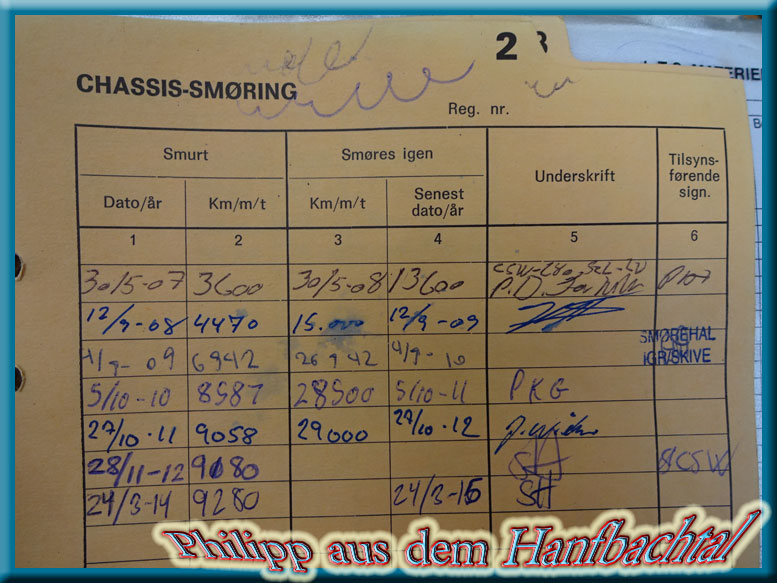 2
CHASSIS-SMØRING
Reg. nr.
Smurt
Smøres igen
Underskrift
Tilsyns-
førende
sign.
Dato/år
Km/m/t
Km/m/t
Senest
dato/år
1 2 3 4 5 6
30/5-07 3600 30/5-08 13600
12/9-08 4470 15.000 12/9-09
SMØREHAL
IGR/SKIVE
4/9-09 6942 26942 4/9-10
5/10-10 8587 28500 5/10-11 PKG
27/10-11 9058 29000 27/10-12
28/11-12 9180 SH
24/3-14 9280 24/3-15 SH
Philipp aus dem Hanfbachtal